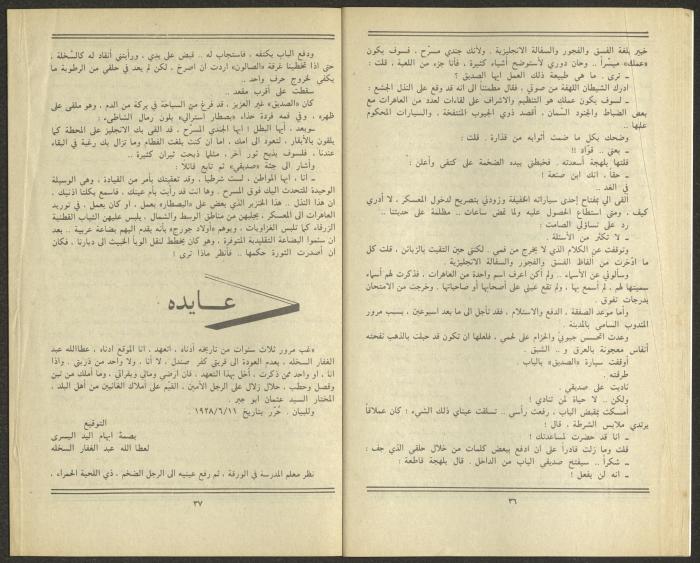 خبير بلغة الفسق والفجور والسفالة الانجليزية . ولأنك جندي مسرّح ، فسوف يكون
«عملك» ميسّراً .. وحان دوري لأستوضح أشياء كثيرة ، فأنا جزء من اللعبة ، قلت :
ـ ترى . ما هي طبيعة ذلك العمل ايها الصديق ؟
ادرك الشيطان اللهفة من صوتي ، فقال مطمئناً الى انه قد وقع على النذل الجشع :
ـ لسوف يكون عملك هو التنظيم والاشراف على لقاءات لعدد من العاهرات مع
بعض الضباط والجنود السّمان ، أقصد ذوي الجيوب المنتفخة ، والسيارات المحكوم
عليها ..
وضحك بكل ما ضمت أثوابه من قذارة . قلت :
ـ يعني .. قوّاد !!
قلتها بلهجة أسعدته . فخبطني بيده الضخمة على كتفي وأعلن :
ـ حقاً ، انك ابن صنعة !
في الغد ..
ألقى الي بمفتاح إحدى سياراته الخفيفة وزودني بتصريح لدخول المعسكر ، لا أدري
كيف ، ومتى استطاع الحصول عليه ولما تمض ساعات .. مظلمة على حديثنا ..
رد على تساؤلي الصامت :
ـ لا تكثر من الأسئلة .
وتوقفت عن الكلام الذي لا يخرج من فمي . لكنني حين التقيت بالزبائن ، قلت كل
ما ادّخرت من ألفاظ الفسق والفجور والسفالة الانجليزية .
وسألوني عن الأسماء .. ولم أكن اعرف اسم واحدة من العاهرات ، فذكرت لهم أسماء
سميتها لهم ، لم أسمع بها ، ولم تقع عيني على أصحابها أو صاحباتها . وخرجت من الامتحان
بدرجات تفوق .
وأما موعد الصفقة ، الدفع والاستلام ، فقد تأجل الى ما بعد اسبوعين ، بسبب مرور
المندوب السامي بالمدينة .
وعدت اتحسس جيوبي والحزام على لحمي ، فلعلها ان تكون قد حبلت بالذهب نفخته
أنفاس معجونة بالعرق و .. الشبق .
أوقفت سيارة «الصديق» بالباب .
طرقته .
ناديت على صديقي .
ولكن .. لا حياة لمن تنادي !
أمسكت بمقبض الباب ، رفعت رأسي .. تسلقت عيناي ذلك الشيء ! كان عملاقاً
يرتدي ملابس الشرطة ، قال !
ـ انا قد حضرت لمساعدتك !
قلت وما زلت قادراً على ان ادفع ببعض كلمات من خلال حلقي الذي جف :
ـ شكراً .. سيفتح صديقي الباب من الداخل . قال بلهجة قاطعة :
ـ انه لن يفعل !
٣٦
ودفع الباب بكتفه ، فاستجاب له .. قبض على يدي ، ورأيتني أنقاد له كالسّخلة ،
حتى اذا تخطّينا غرقة «الصالون» اردت ان اصرخ ، لكن لم يعد في حلقي من الرطوبة ما
يكفي لخروج حرف واحد ..
سقطت على أقرب مقعد ..
كان «الصديق» غير العزيز ، قد فرغ من السباحة في بركة من الدم ، وهو ملقى على
ظهره ، وفي فمه فردة حذاء «بصطار أسترالي» بلون رمال الشاطىء :
ـ وبعد ، أيها البطل ! ايها الجندي المسرّح ، قد القى بك الانجليز على المحطة كما
يلقون بالأبقار ، لتعود الى امك ، اما ان كنت بلغت الفطام وما تزال بك رغبة في البقاء
عندنا ، فلسوف يذبح ثور آخر ، مثلما ذبحت ثيران كثيرة ..
وأشار الى جثة «صديقي» ثم تابع قائلاً :
ـ أنا ، ايها المواطن ، لست شرطياً ، وقد تعقبتك بأمر من القيادة ، وهي الوسيلة
الوحيدة للتحدث اليك فوق المسرح . وها انت قد رأيت بأم عينك ، فاسمع بكلتا اذنيك ،
ان هذا النذل .. هذا الخنزير الذي بعض على «البصطار» يعمل ، او كان يعمل ، في توريد
العاهرات الى المعسكر ، يجلبهن من مناطق الوسط والشمال ، يلبس عليهن الثياب القطنية
الزرقاء كما تلبس الغزاويات ، ويوهم «أولاد جورج» بأنه يقدم اليهم بضاعة عربية .. بعد
ان سئموا البضاعة التقليدية المتوفرة ، وهو كان يخطط لنقل الوبأ الخبيث الى ديارنا ، فكان
ان أصدرت الثورة حكمها .. فأنظر ماذا ترى !
عــايده
«غب مرور ثلاث سنوات من تاريخه أدناه ، اتعهد ، انا الموقع ادناه ، عطا الله عبد
الغفار السخله ، بعدم العودة الى قريتي كفر صندل ، لا أنا ، ولا واحد من ذريتي . واذا
انا ، او واحد ممن ذكرت ، أخل بهذا التعهد ، فان ارضي ومالي وبقراتي ، وما أملك من تبن
وفصل وحطب ، حلال زلال على الرجل الأمين ، القيّم على أملاك الغائبين من أهل البلد ،
المختار السيد عثمان ابو جبر .
وللبيان . حُرّر بتاريخ ١٩٢٨/٦/١١
التوقيع
بصمة ابهام اليد اليسرى
لعطا الله عبد الغفار السخله
نظر معلم المدرسة في الورقة ، ثم رفع عينيه الى الرجل الضخم ، ذي اللحية الحمراء ،
٣٧